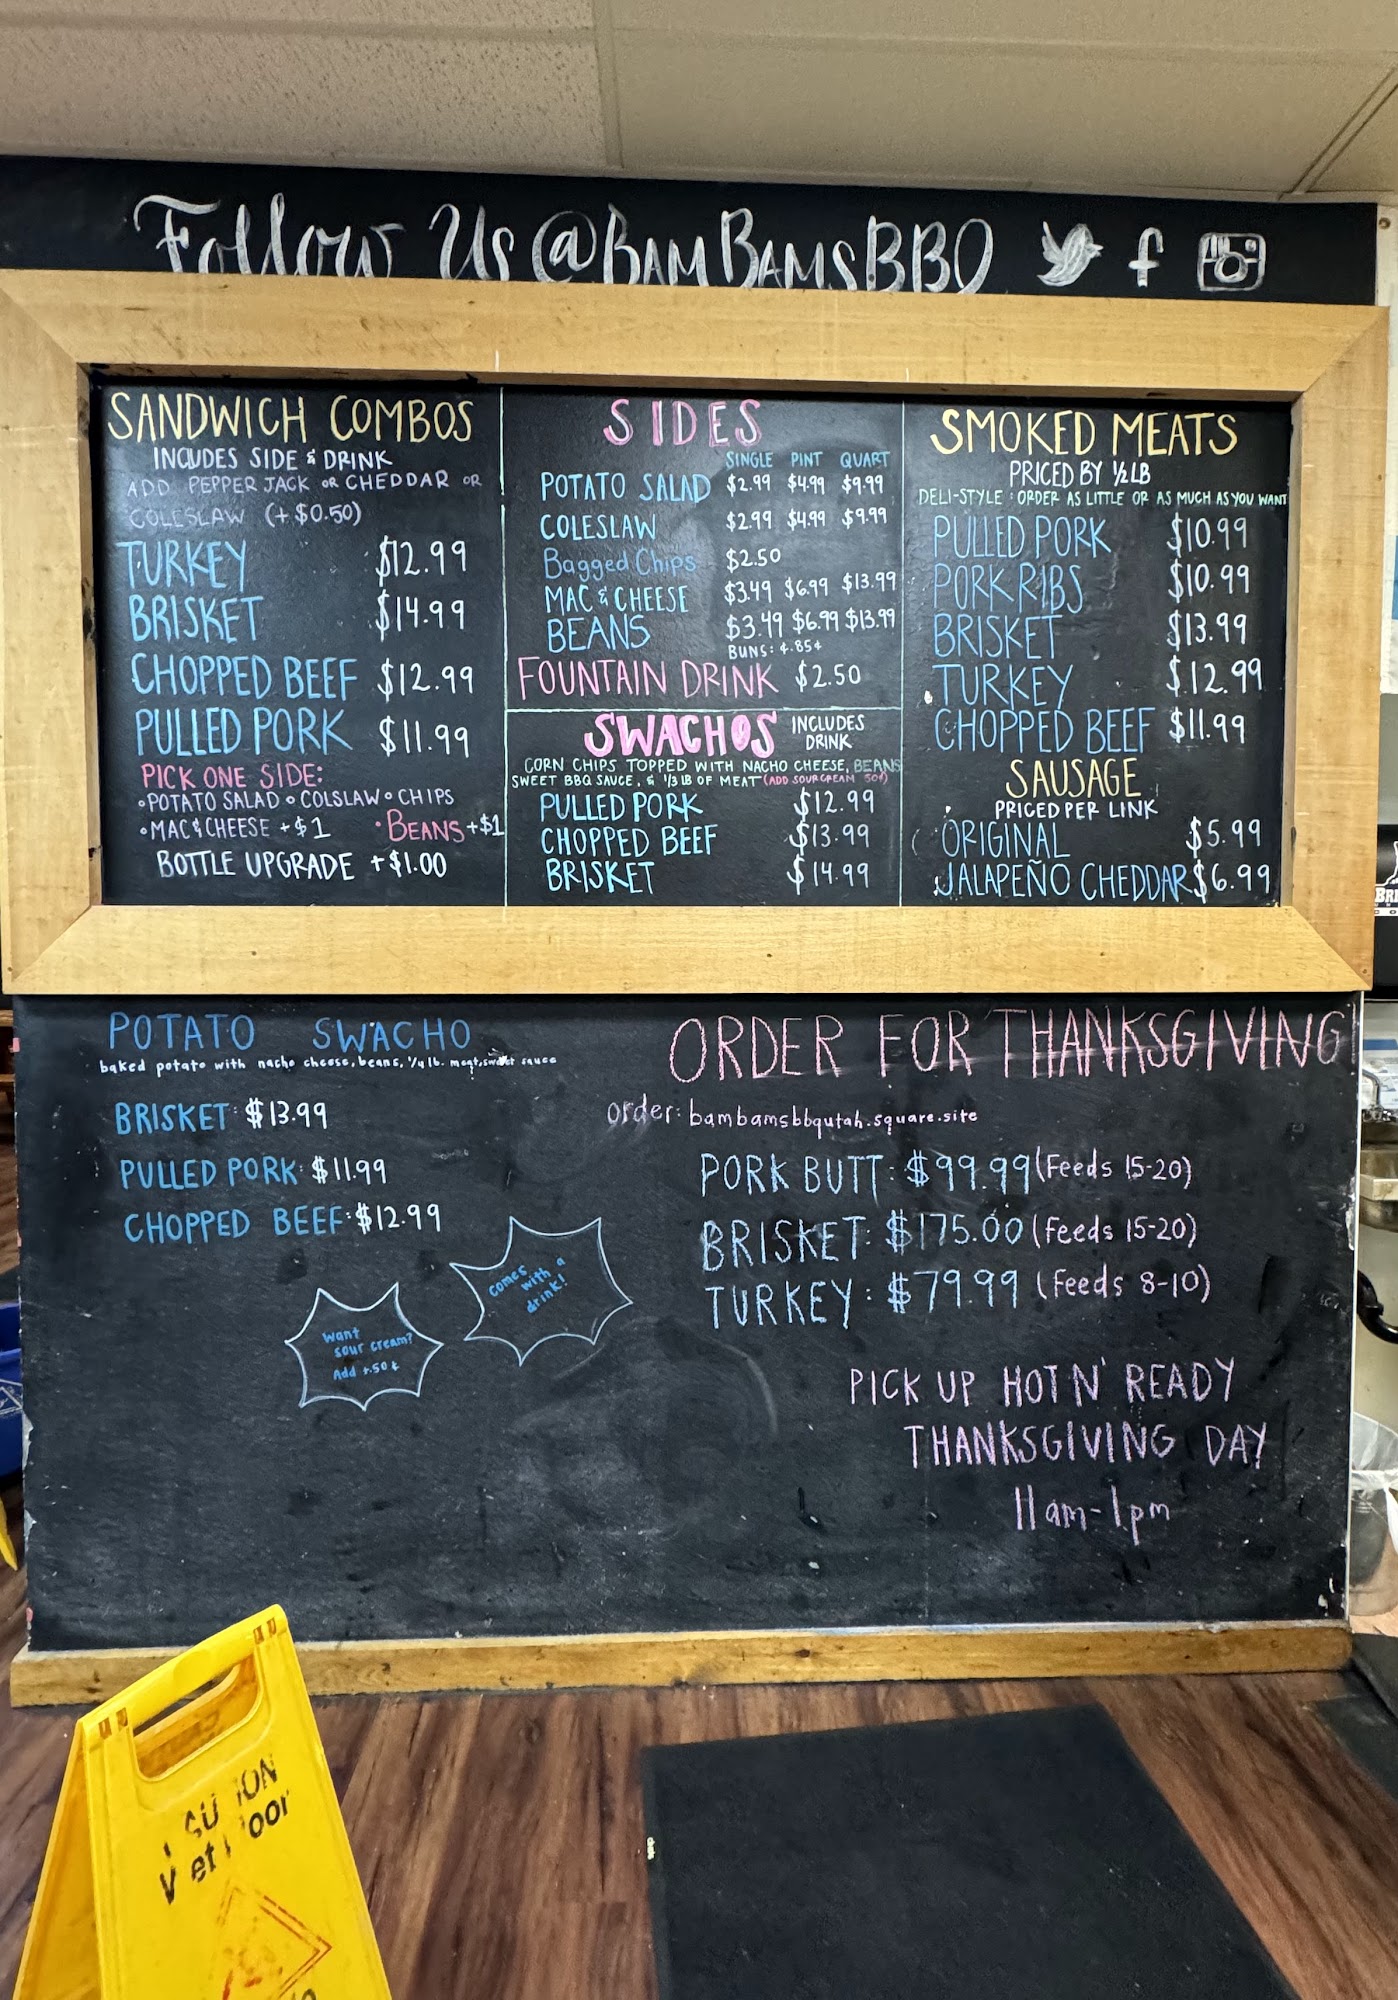 Follow Us @BAMBAMSBBQ f
SANDWICH COMBOS
INCLUDES SIDE & DRINK
ADD PEPPER JACK OR CHEDDAR OR
COLESLAW (+$0.50)
TURKEY $12.99
BRISKET $14.99
CHOPPED BEEF $12.99
PULLED PORK $11.99
PICK ONE SIDE:
◦POTATO SALAD ◦COLSLAW ◦CHIPS
◦MAC & CHEESE +$1 •BEANS +$1
BOTTLE UPGRADE +$1.00
SIDES
SINGLE PINT QUART
POTATO SALAD $2.99 $4.99 $9.99
COLESLAW $2.99 $4.99 $9.99
Bagged Chips $2.50
MAC & CHEESE $3.49 $6.99 $13.99
BEANS $3.49 $6.99 $13.99
BUNS: ¢.85¢
FOUNTAIN DRINK $2.50
SWACHOS INCLUDES
DRINK
CORN CHIPS TOPPED WITH NACHO CHEESE, BEANS
SWEET BBQ SAUCE, & 1/3 LB OF MEAT (ADD SOUR CREAM 50¢)
PULLED PORK $12.99
CHOPPED BEEF $13.99
BRISKET $14.99
SMOKED MEATS
PRICED BY 1/2 LB
DELI-STYLE: ORDER AS LITTLE OR AS MUCH AS YOU WANT
PULLED PORK $10.99
PORK RIBS $10.99
BRISKET $13.99
TURKEY $12.99
CHOPPED BEEF $11.99
SAUSAGE
PRICED PER LINK
ORIGINAL $5.99
JALAPEÑO CHEDDAR $6.99
POTATO SWACHO
baked potato with nacho cheese, beans, 1/4 lb. meat, sweet sauce
BRISKET: $13.99
PULLED PORK: $11.99
CHOPPED BEEF: $12.99
comes
with a
drink!
Want
sour cream?
Add +.50¢
ORDER FOR THANKSGIVING
order: bambamsbbqutah.square.site
PORK BUTT: $99.99 (Feeds 15-20)
BRISKET: $175.00 (Feeds 15-20)
TURKEY: $79.99 (Feeds 8-10)
PICK UP HOT N' READY
THANKSGIVING DAY
11am-1pm
CAUTION
Wet Floor